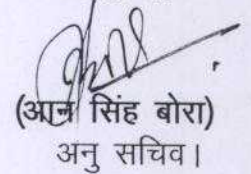 (आन सिंह बोरा)
अनु सचिव।